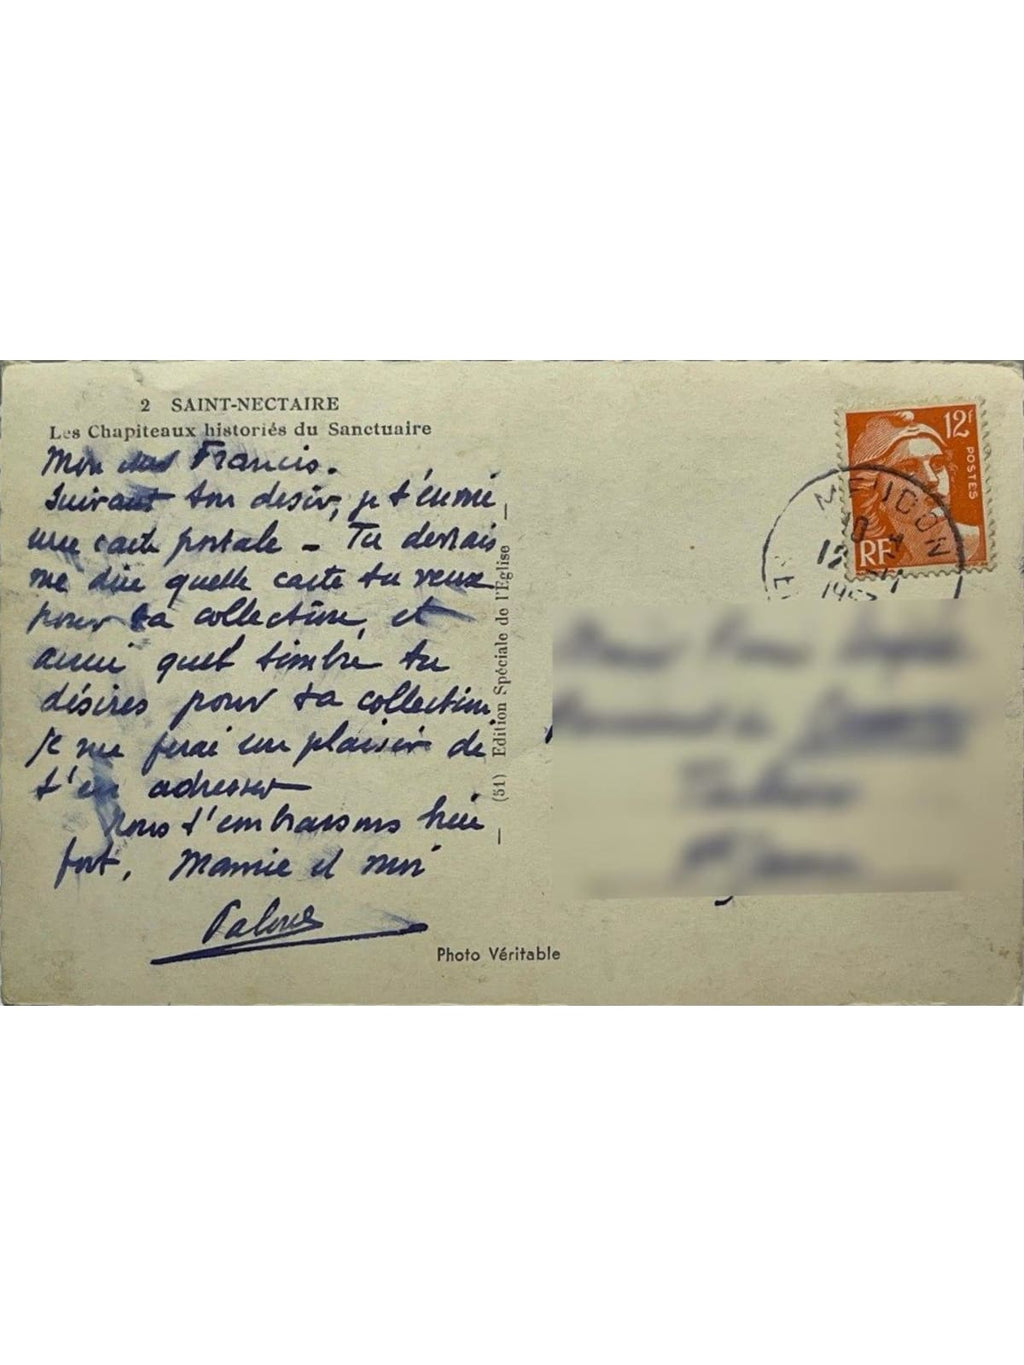 2 SAINT-NECTAIRE
Les Chapiteaux historiés du Sanctuaire
Mon cher Francis.
Suivant ton desir, je t'envoie
une carte postale - Tu devrais
me dire quelle carte tu veux
pour ta collection, et
aussi quel timbre tu
désires pour ta collection
je me ferai un plaisir de
t'en adresser
Nous t'embrassons bien
fort, Mamie et moi
(51) Edition Spéciale de l'Eglise
Photo Véritable
12f
POSTES
RF
MEUDON
12